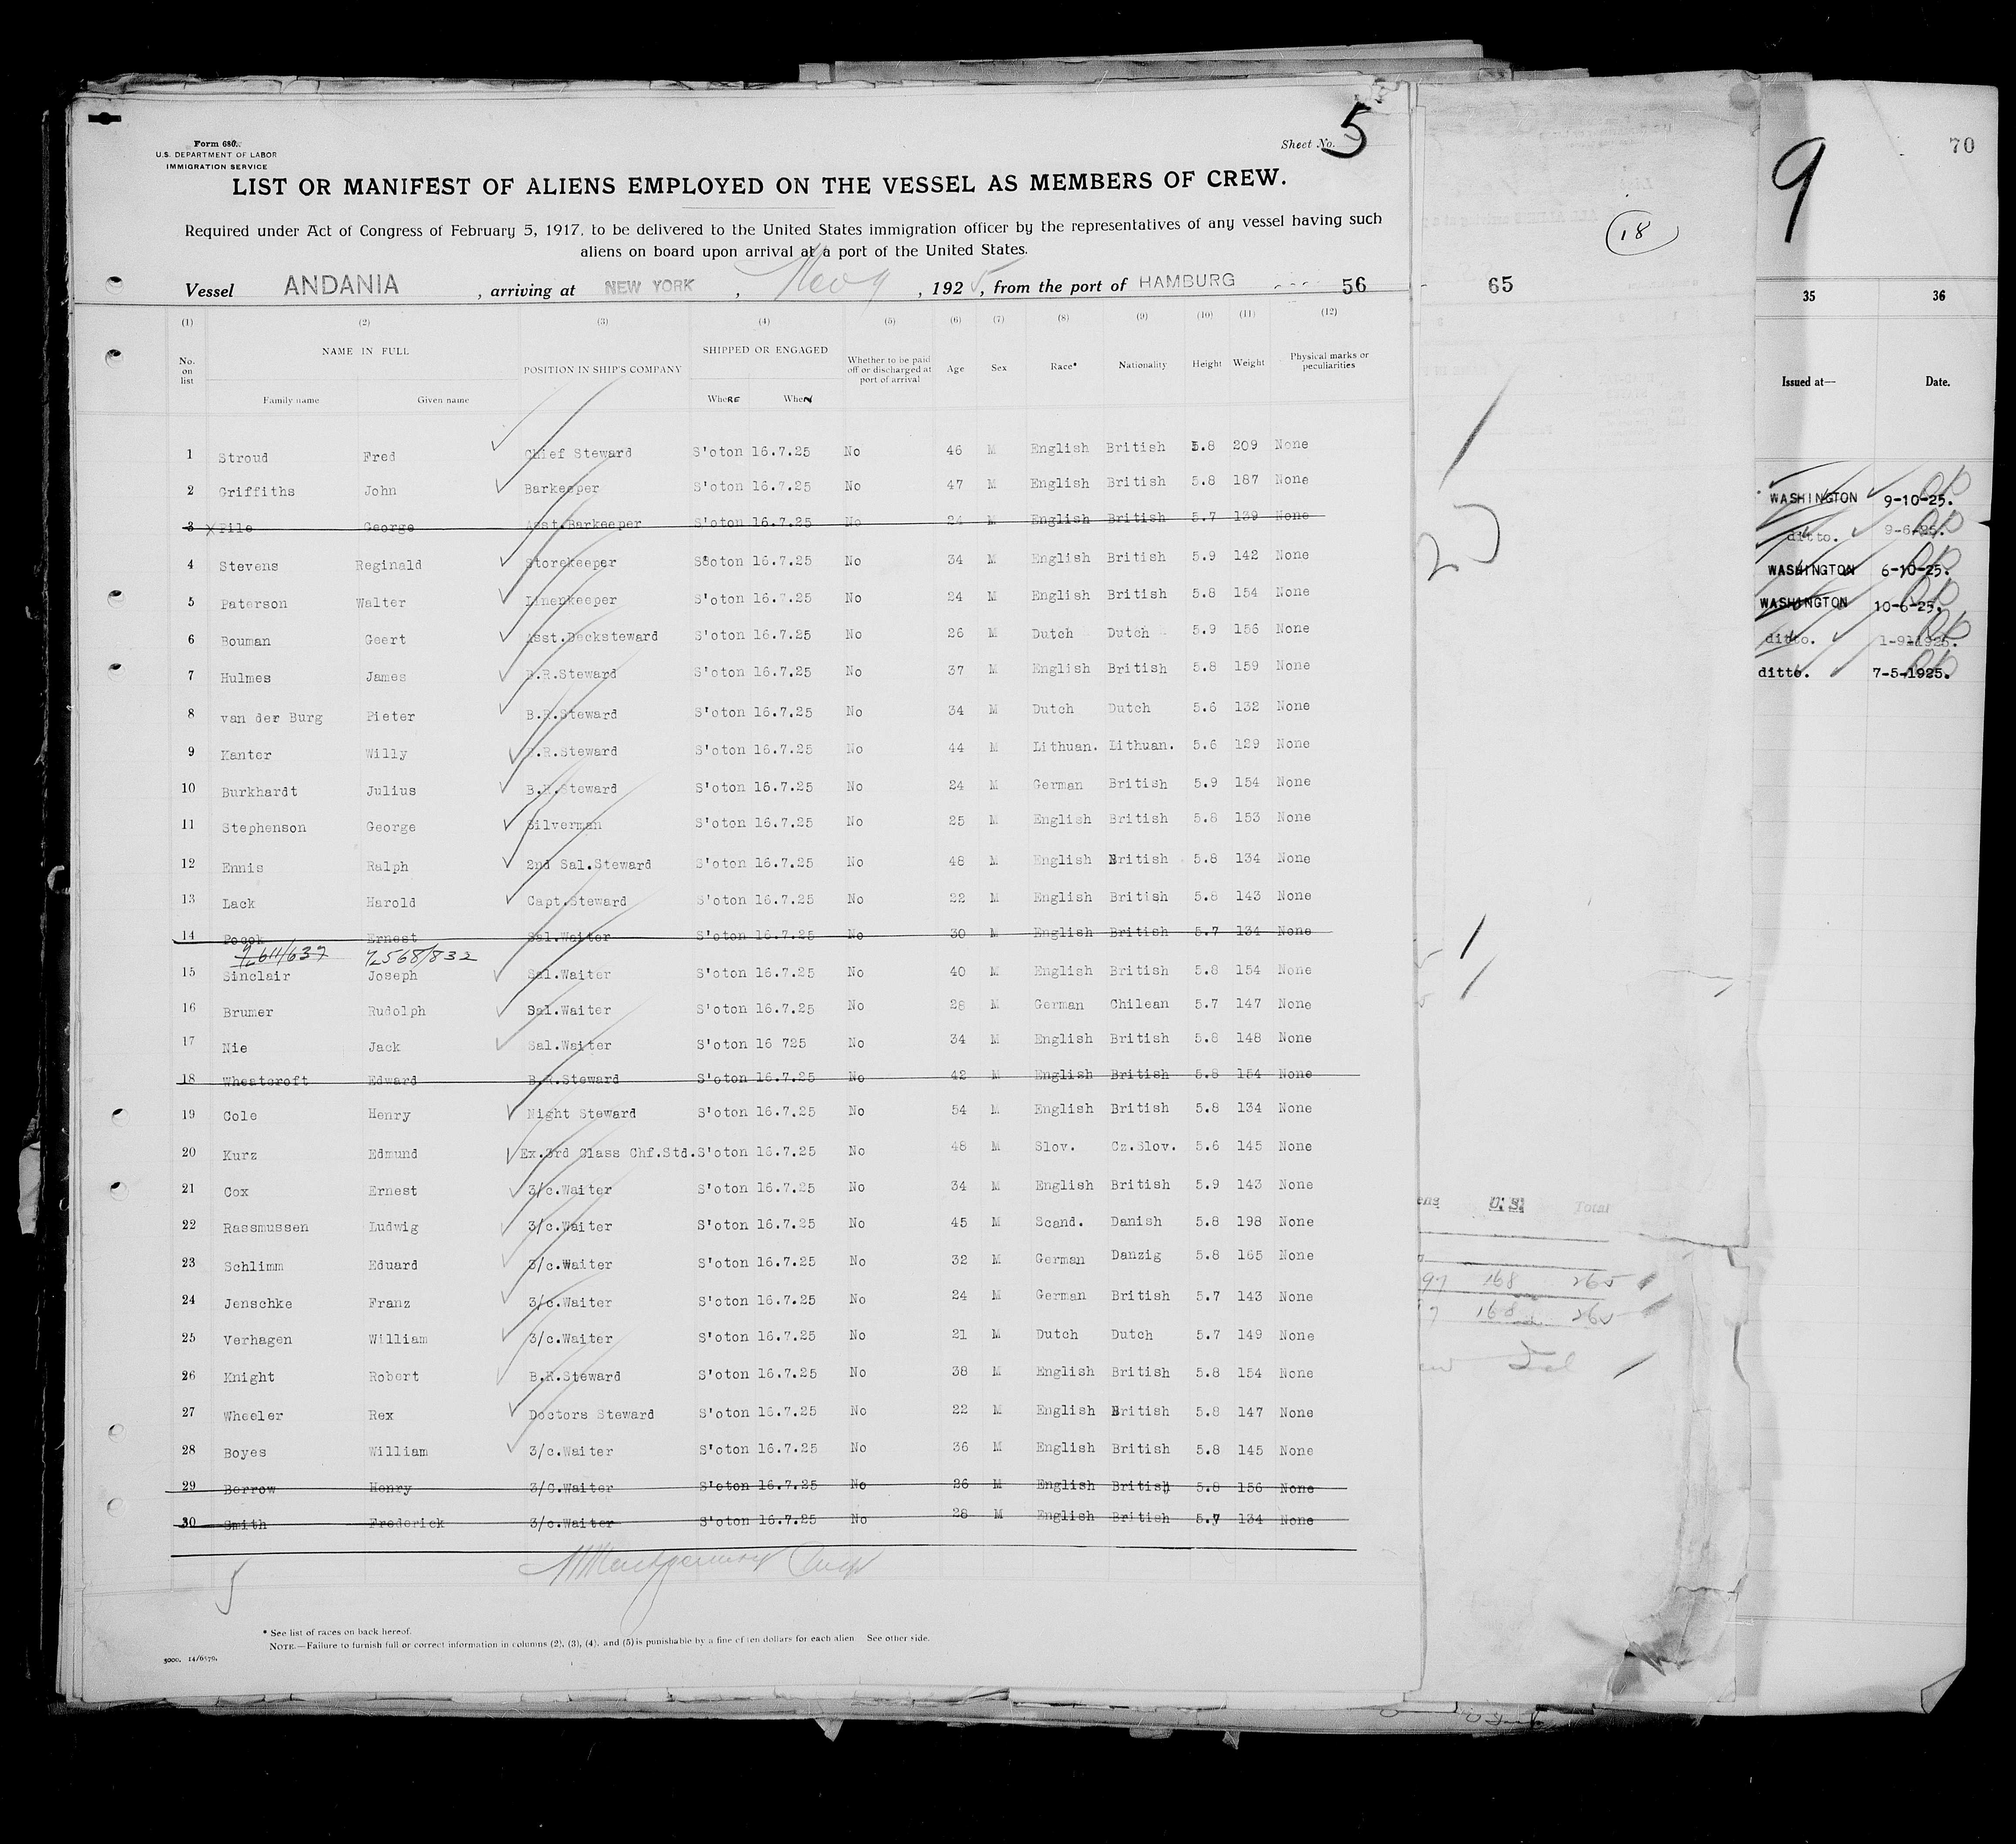 5
Form 680.
U.S. DEPARTMENT OF LABOR
IMMIGRATION SERVICE
Sheet No.
LIST OR MANIFEST OF ALIENS EMPLOYED ON THE VESSEL AS MEMBERS OF CREW.
Required under Act of Congress of February 5, 1917, to be delivered to the United States immigration officer by the representatives of any vessel having such
aliens on board upon arrival at a port of the United States.
Vessel ANDANIA , arriving at NEW YORK , Nov 9 , 1925 , from the port of HAMBURG 56
(1) (2) (3) (4) (5) (6) (7) (8) (9) (10) (11) (12)
No. on list NAME IN FULL POSITION IN SHIP'S COMPANY SHIPPED OR ENGAGED Whether to be paid off or discharged at port of arrival Age Sex Race* Nationality Height Weight Physical marks or peculiarities
Family name Given name WheRE WheN
1 Stroud Fred Chief Steward S'oton 16.7.25 No 46 M English British 5.8 209 None
2 Griffiths John Barkeeper S'oton 16.7.25 No 47 M English British 5.8 187 None
3 X Pile George Asst.Barkeeper S'oton 16.7.25 No 24 M English British 5.7 139 None
4 Stevens Reginald Storekeeper S'oton 16.7.25 No 34 M English British 5.9 142 None
5 Paterson Walter Linenkeeper S'oton 16.7.25 No 24 M English British 5.8 154 None
6 Bouman Geert Asst.Decksteward S'oton 16.7.25 No 26 M Dutch Dutch 5.9 156 None
7 Hulmes James B.R.Steward S'oton 16.7.25 No 37 M English British 5.8 159 None
8 van der Burg Pieter B.R.Steward S'oton 16.7.25 No 34 M Dutch Dutch 5.6 132 None
9 Kanter Willy B.R.Steward S'oton 16.7.25 No 44 M Lithuan. Lithuan. 5.6 129 None
10 Burkhardt Julius B.R.Steward S'oton 16.7.25 No 24 M German British 5.9 154 None
11 Stephenson George Silverman S'oton 16.7.25 No 25 M English British 5.8 153 None
12 Ennis Ralph 2nd Sal.Steward S'oton 16.7.25 No 48 M English British 5.8 134 None
13 Lack Harold Capt.Steward S'oton 16.7.25 No 22 M English British 5.8 143 None
14 Pocok Ernest Sal.Waiter S'oton 16.7.25 No 30 M English British 5.7 134 None
611/637 568/832
15 Sinclair Joseph Sal.Waiter S'oton 16.7.25 No 40 M English British 5.8 154 None
16 Brumer Rudolph Sal.Waiter S'oton 16.7.25 No 28 M German Chilean 5.7 147 None
17 Nie Jack Sal.Waiter S'oton 16 725 No 34 M English British 5.8 148 None
18 Wheatcroft Edward B.R.Steward S'oton 16.7.25 No 42 M English British 5.8 154 None
19 Cole Henry Night Steward S'oton 16.7.25 No 54 M English British 5.8 134 None
20 Kurz Edmund Ex.3rd Class Chf.Std. S'oton 16.7.25 No 48 M Slov. Cz.Slov. 5.6 145 None
21 Cox Ernest 3/c.Waiter S'oton 16.7.25 No 34 M English British 5.9 143 None
22 Rassmussen Ludwig 3/c.Waiter S'oton 16.7.25 No 45 M Scand. Danish 5.8 198 None
23 Schlimm Eduard 3/c.Waiter S'oton 16.7.25 No 32 M German Danzig 5.8 165 None
24 Jenschke Franz 3/c.Waiter S'oton 16.7.25 No 24 M German British 5.7 143 None
25 Verhagen William 3/c.Waiter S'oton 16.7.25 No 21 M Dutch Dutch 5.7 149 None
26 Knight Robert B.R.Steward S'oton 16.7.25 No 38 M English British 5.8 154 None
27 Wheeler Rex Doctors Steward S'oton 16.7.25 No 22 M English British 5.8 147 None
28 Boyes William 3/c.Waiter S'oton 16.7.25 No 36 M English British 5.8 145 None
29 Borrow Henry 3/C.Waiter S'oton 16.7.25 No 26 M English British 5.8 156 None
30 Smith Frederick 3/c.Waiter S'oton 16.7.25 No 28 M English British 5.7 134 None
5
* See list of races on back hereof.
NOTE.—Failure to furnish full or correct information in columns (2), (3), (4), and (5) is punishable by a fine of ten dollars for each alien See other side.
3000. 14/6570.
18
65
U.S. Total
97 168 265
168 265
9
70
35 36
Issued at— Date.
WASHINGTON 9-10-25.
ditto. 9-6-25.
WASHINGTON 6-10-25.
WASHINGTON 10-6-25.
ditto. 1-9-1925.
ditto. 7-5-1925.